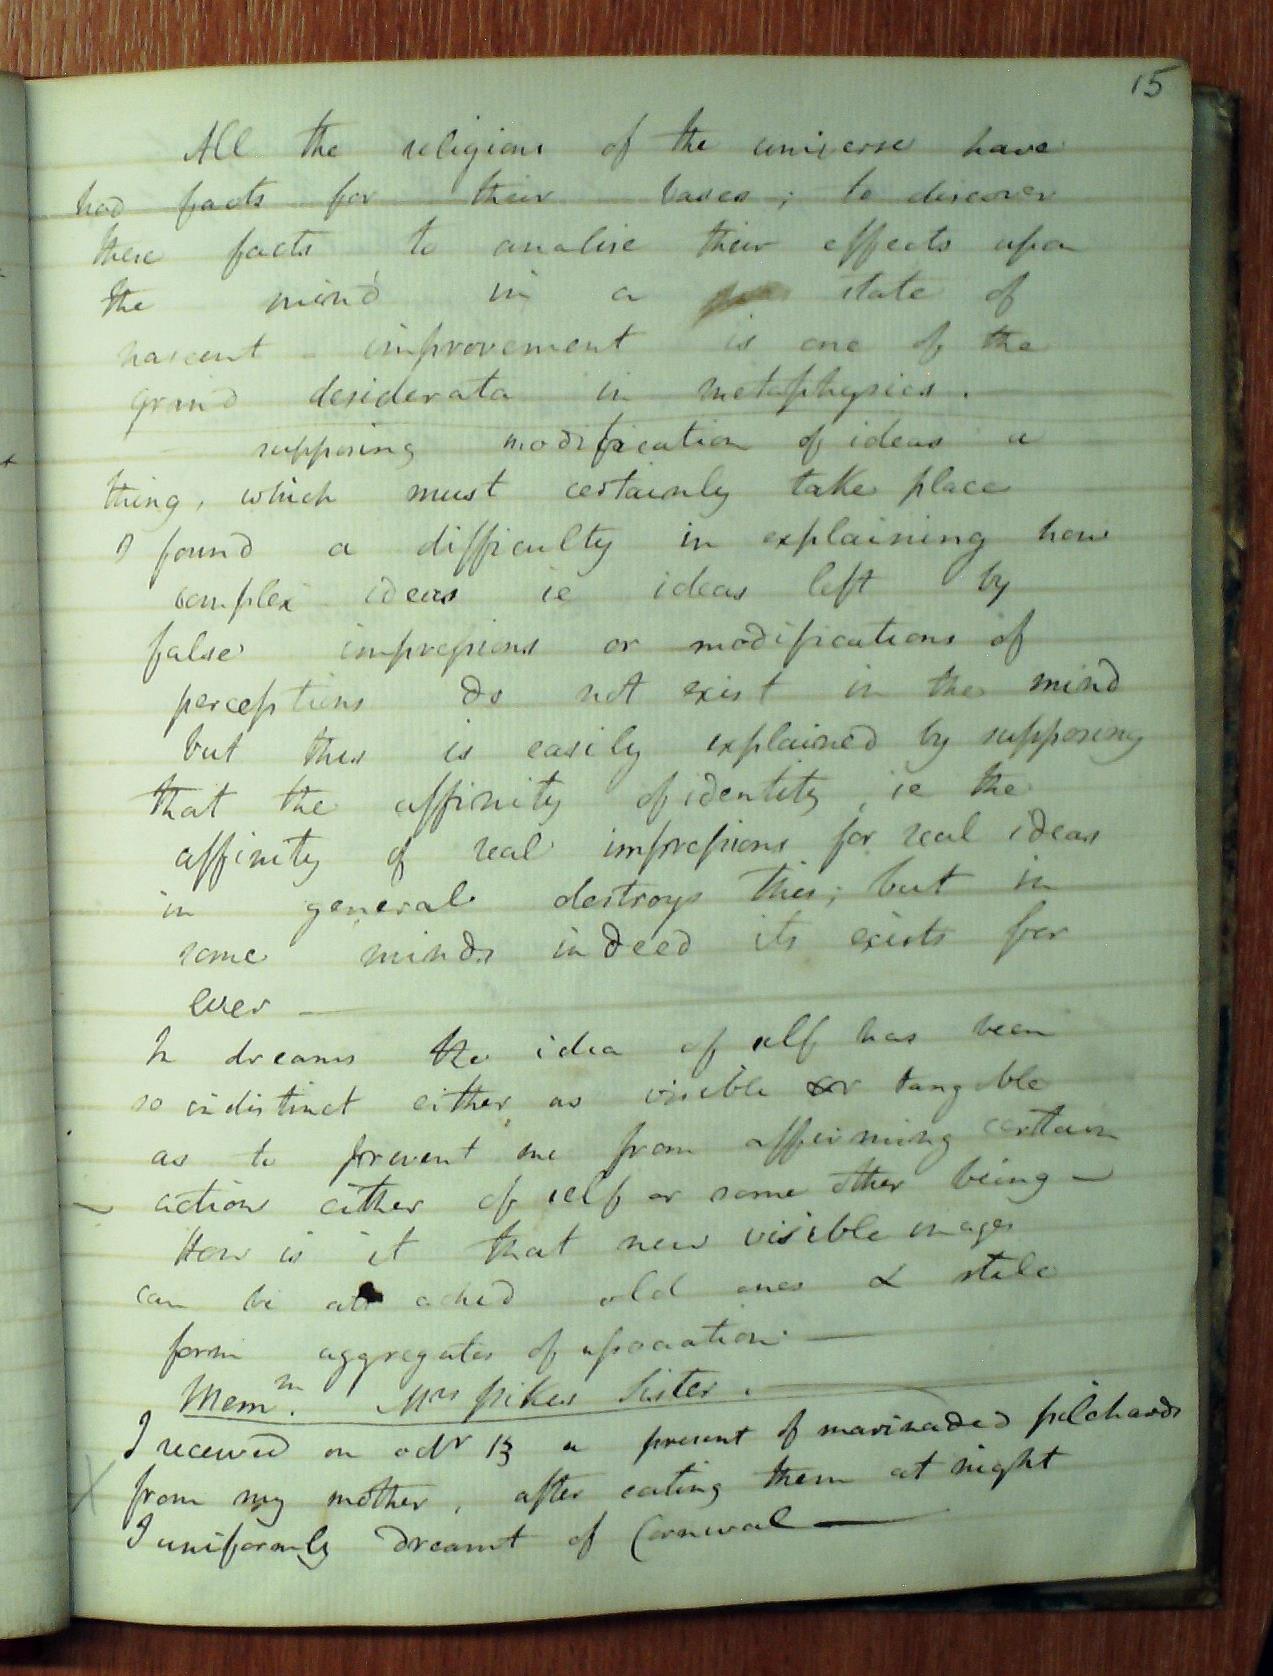 15
All the religions of the universe have
had facts for their bases; to discover
these facts to analise their effects upon
the mind in a state of
nascent improvement is one of the
grand desiderata in metaphysics.
supposing modification of ideas a
thing, which must certainly take place
I found a difficulty in explaining how
complex ideas ie ideas left by
false impressions or modifications of
perceptions do not exist in the mind
but this is easily explained by supposing
that the affinity of identity, ie the
affinity of real impressions for real ideas
in general destroys this; but in
some minds indeed its exists for
ever —
In dreams the idea of self has been
so indistinct either as visible or tangible
as to prevent me from affirming certain
— action either of self or some other being —
How is it that new visible images
can be attached old ones &
form aggregates of association. —
Mem.m Mrs pikes Sister. —
I received on octr 13 a present of marinaded pilchards
X from my mother, after eating them at night
I uniformly dreamt of Cornwal —